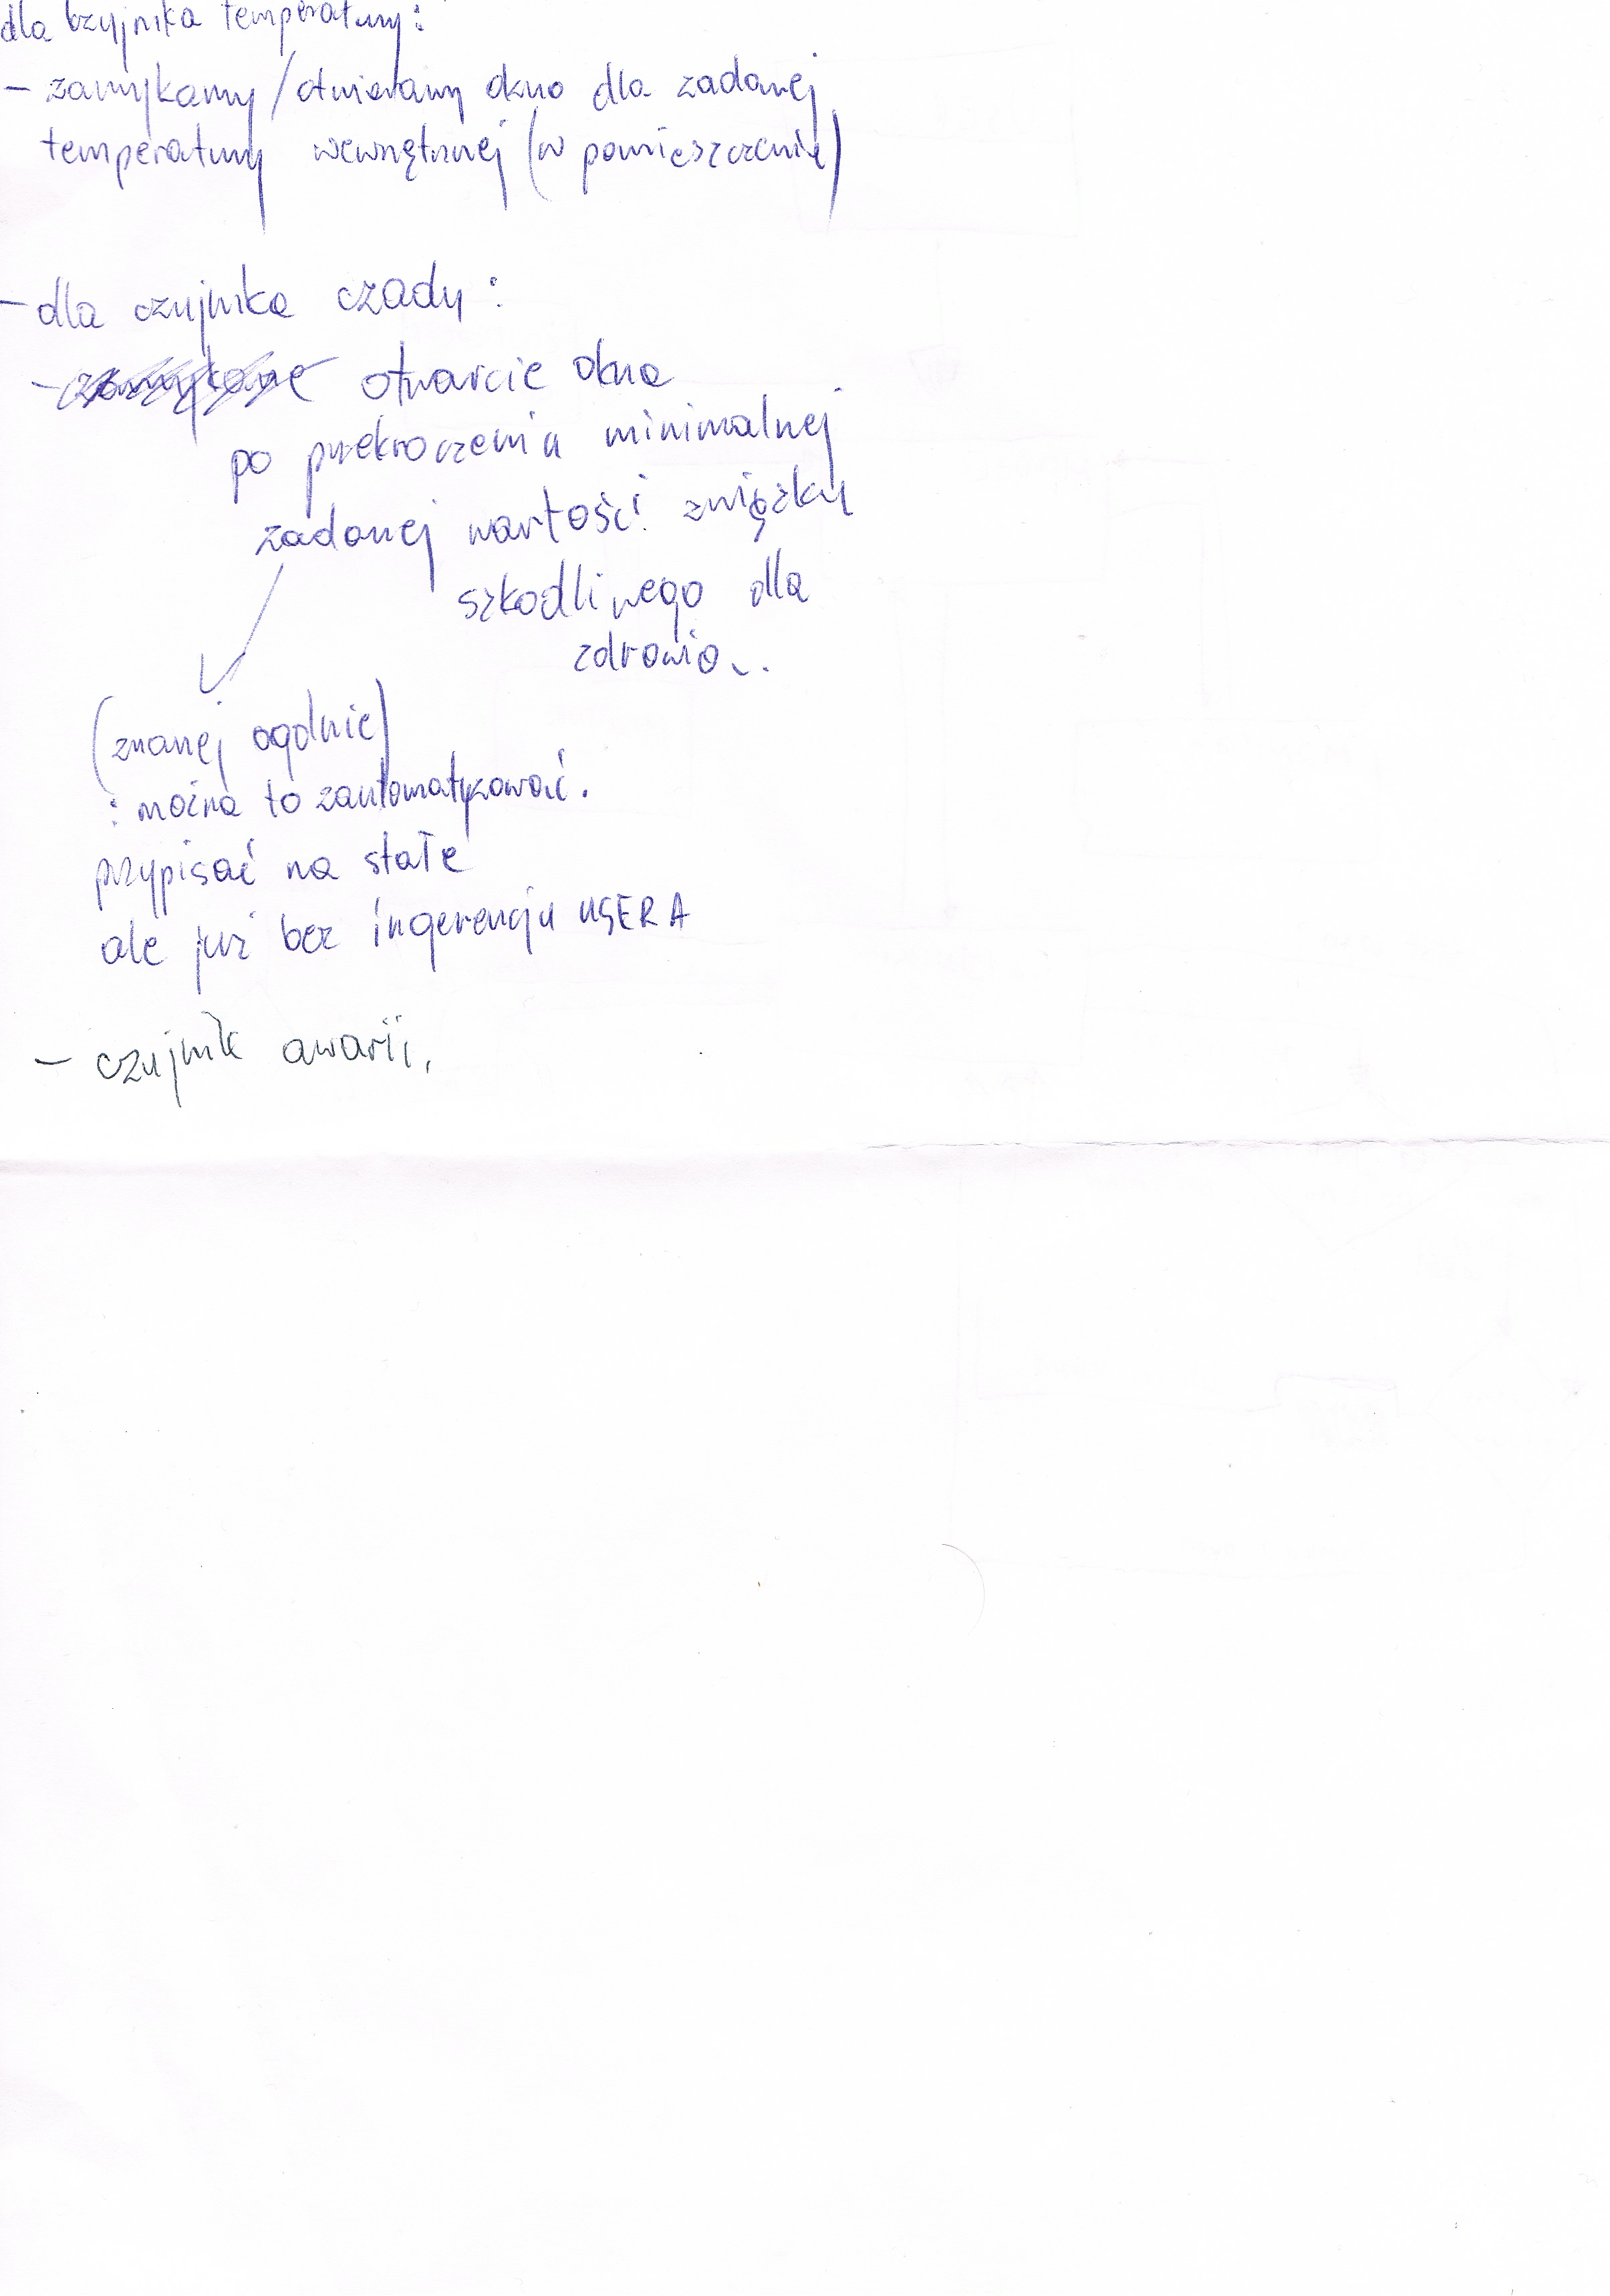 dla czujnika temperatury:
- zamykamy/otwieramy okno dla zadanej
temperatury wewnętrznej (w pomieszczenie)
- dla czujnika czadu:
- otwarcie okna
po przekroczeniu minimalnej
zadanej wartości związku
szkodliwego dla
zdrowia...
(znanej ogólnie)
: można to zautomatyzować.
przypisać na stałe
ale już bez ingerencju USERA
- czujnik awarii,